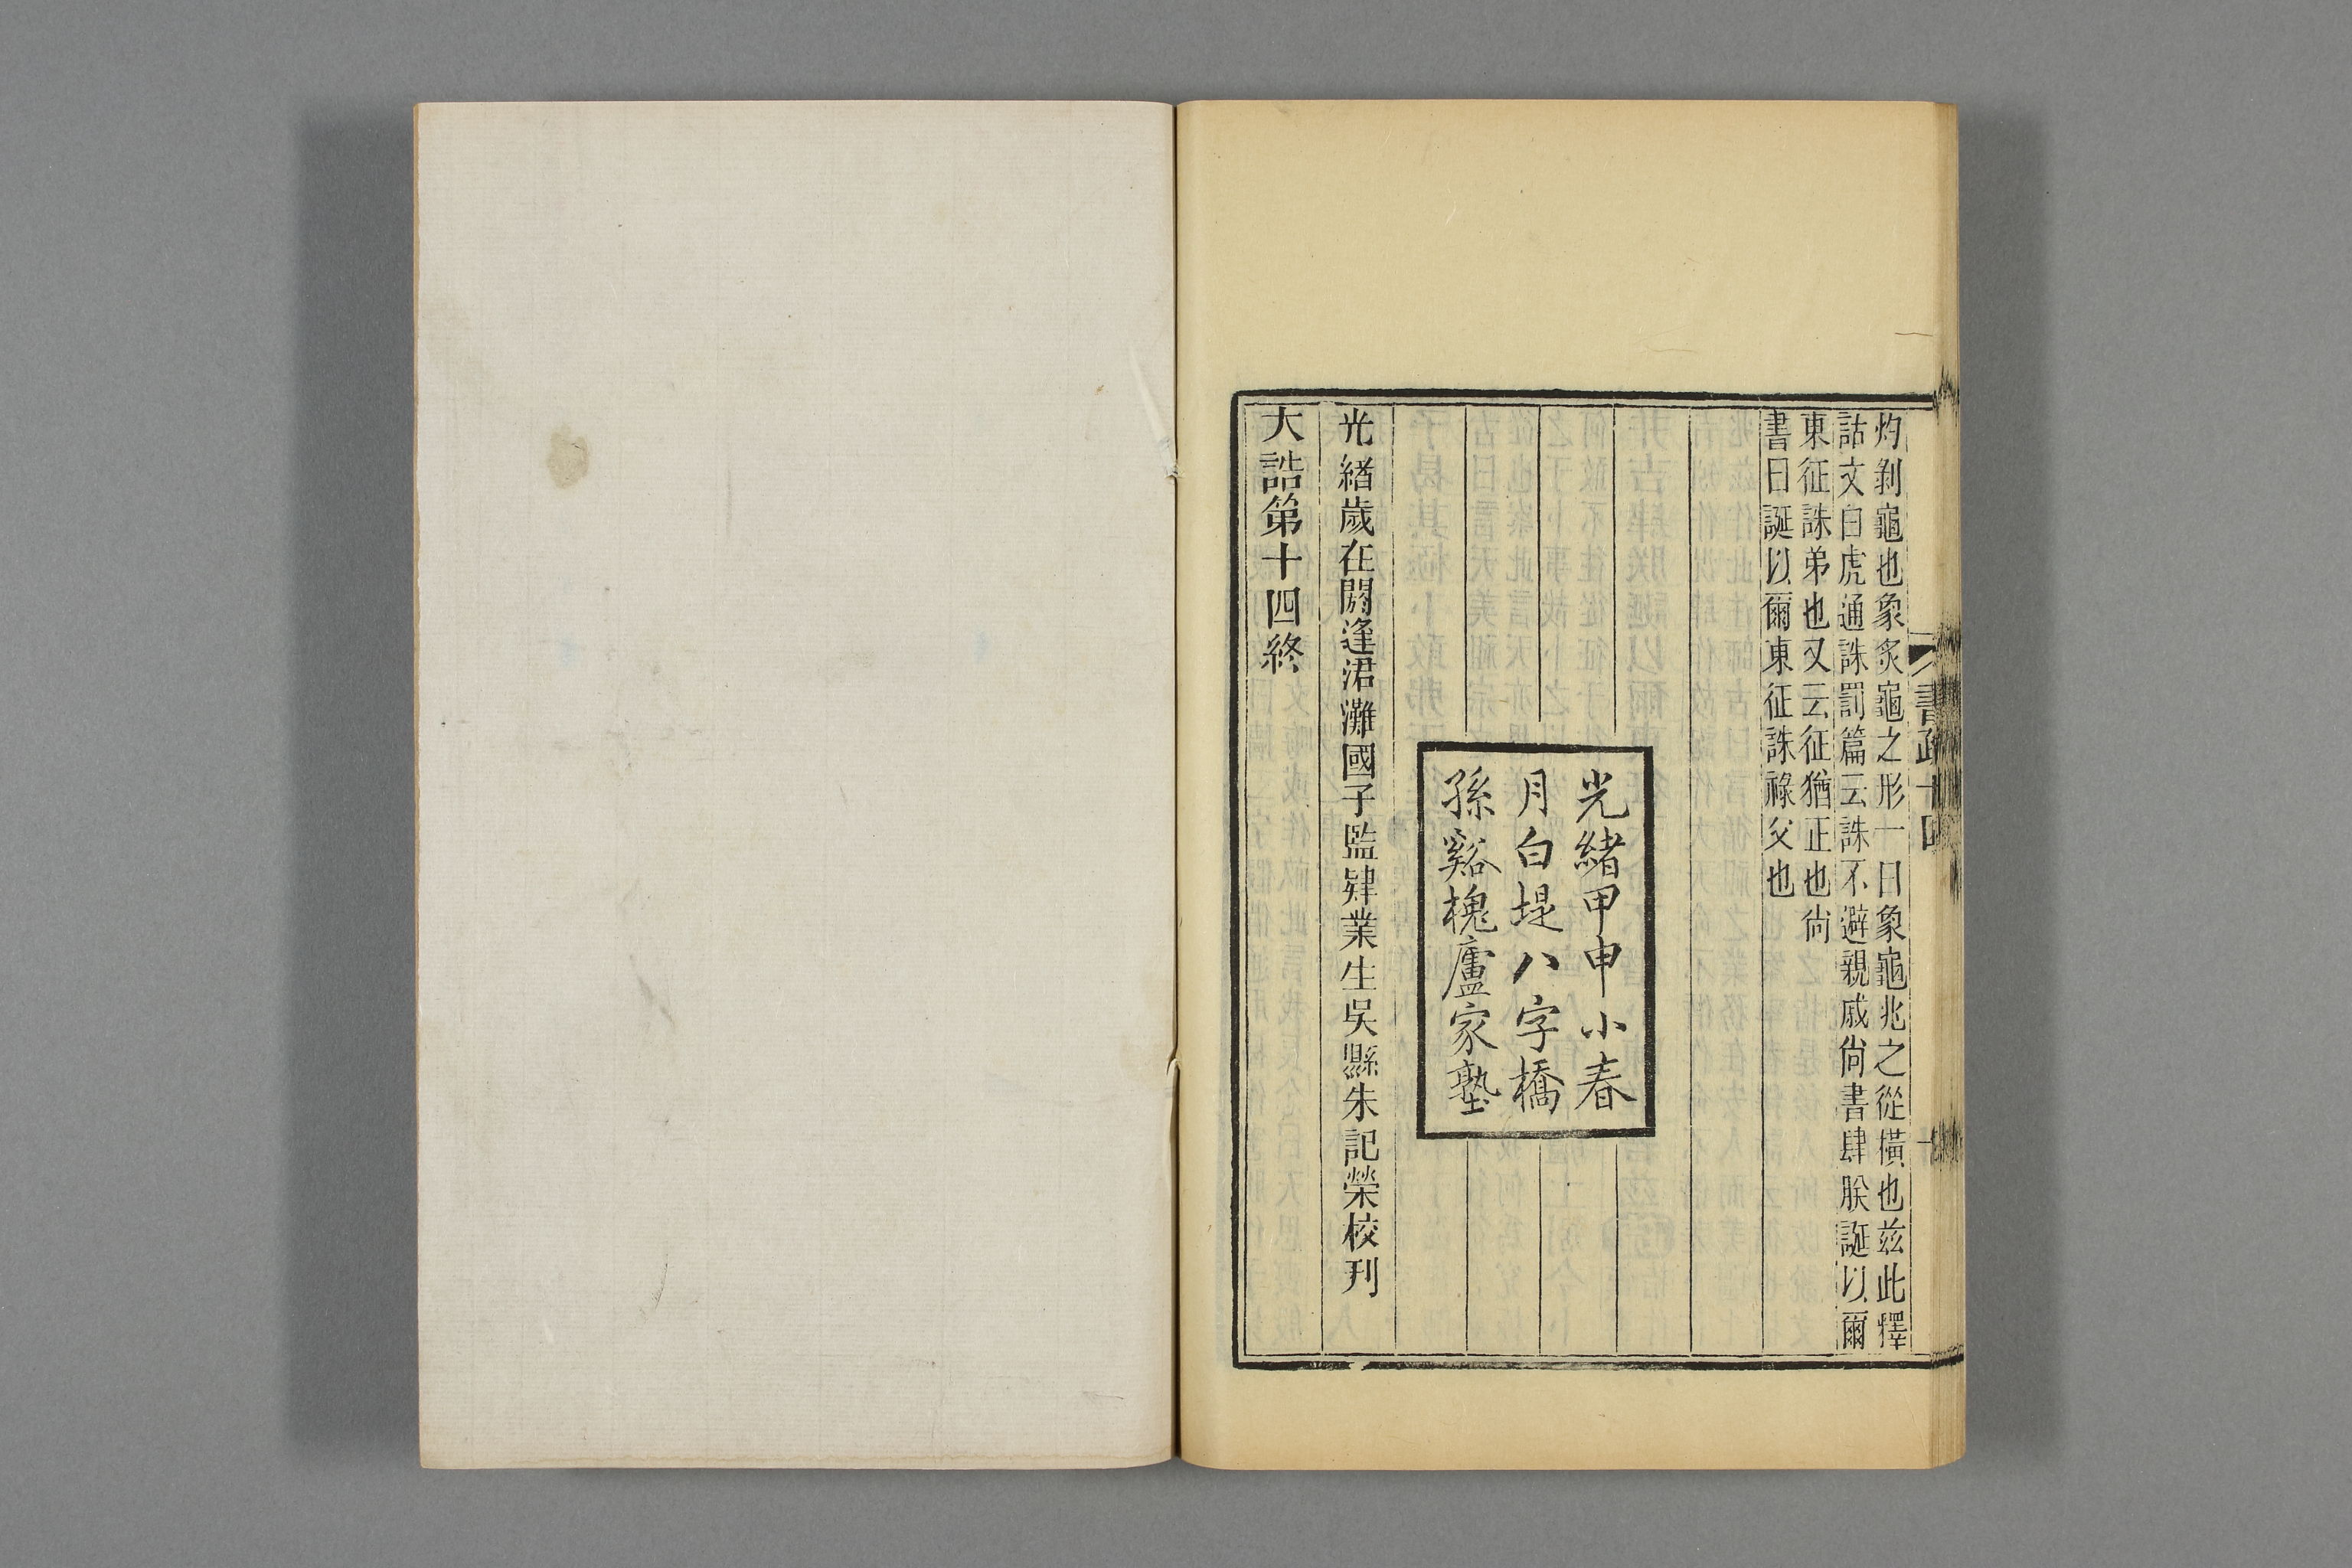 灼剝龜也象炙龜之形一曰象龜兆之從橫也兹此釋
詁文白虎通誅罰篇云誅不避親戚尙書肆朕誕以爾
東征誅弟也又云征猶正也尙
書曰誕以爾東征誅祿父也
光緒甲申小春
月白堤八字橋
孫谿槐廬家塾
光緖歲在閼逢涒灘國子監肄業生吳縣朱記榮校刊
大誥第十四終